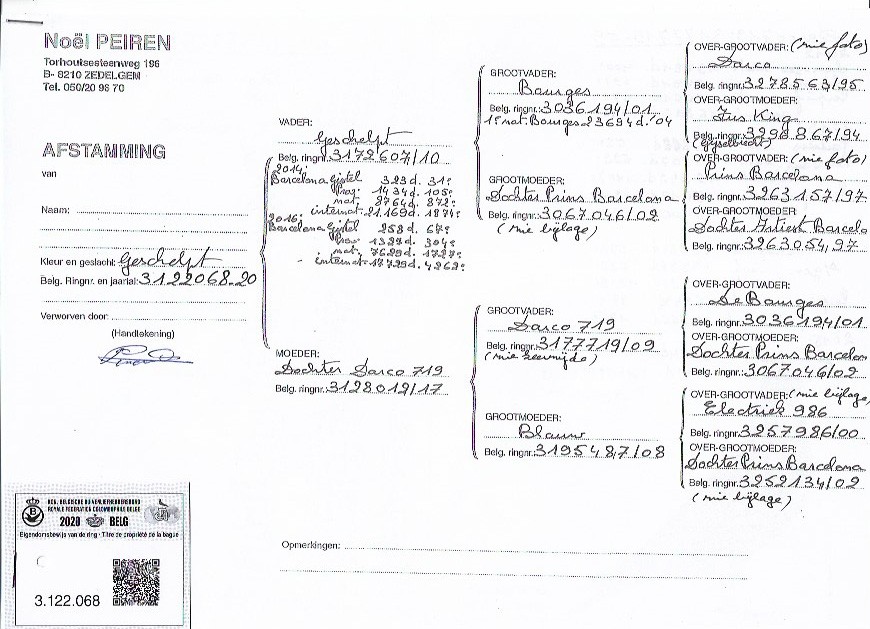 Noël PEIREN
Torhoutsesteenweg 196
B- 8210 ZEDELGEM
Tel. 050/20 96 70
AFSTAMMING
van
Naam:
Kleur en geslacht: Geschelpt
Belg. Ringnr. en jaartal: 3122068.20
Verworven door:
(Handtekening)
KON. BELGISCHE DUIVENLIEFHEBBERSBOND
ROYALE FEDERATION COLOMBOPHILE BELGE
2020 BELG
Eigendomsbewijs van de ring - Titre de propriété de la bague
3.122.068
VADER:
Geschelpt
Belg. ringnr. 3172607/10
2014:
Barcelona Gistel 323d. 31e
Prov. 1434d. 105e
nat. 8764d. 872e
internat. 21.169d. 1874e
2016:
Barcelona Gistel 253d. 67e
Prov. 1327d. 304e
nat. 7629d. 1727e
- internat. 17729d. 4262e
MOEDER:
Dochter Darco 719
Belg. ringnr. 3128019/17
GROOTVADER:
Bourges
Belg. ringnr. 3036194/01
1e nat. Bourges 23694d. '04
GROOTMOEDER:
Dochter Prins Barcelona
Belg. ringnr. 3067046/02
(zie bijlage)
GROOTVADER:
Darco 719
Belg. ringnr. 3177719/09
(zie keerzijde)
GROOTMOEDER:
Blauw
Belg. ringnr. 3195487/08
OVER-GROOTVADER: (zie foto)
Darco
Belg. ringnr. 3278563/95
OVER-GROOTMOEDER:
Zus King
Belg. ringnr. 3298867/94
(Gyselbrecht)
OVER-GROOTVADER: (zie foto)
Prins Barcelona
Belg. ringnr. 3263157/97
OVER-GROOTMOEDER:
Dochter Artiest Barcelo
Belg. ringnr. 3263054,97
OVER-GROOTVADER:
De Bourges
Belg. ringnr. 3036194/01
OVER-GROOTMOEDER:
Dochter Prins Barcelon
Belg. ringnr. 3067046/02
OVER-GROOTVADER: (zie bijlage)
Electriek 986
Belg. ringnr. 3257986/00
OVER-GROOTMOEDER:
Dochter Prins Barcelona
Belg. ringnr. 3252134/02
(zie bijlage)
Opmerkingen: